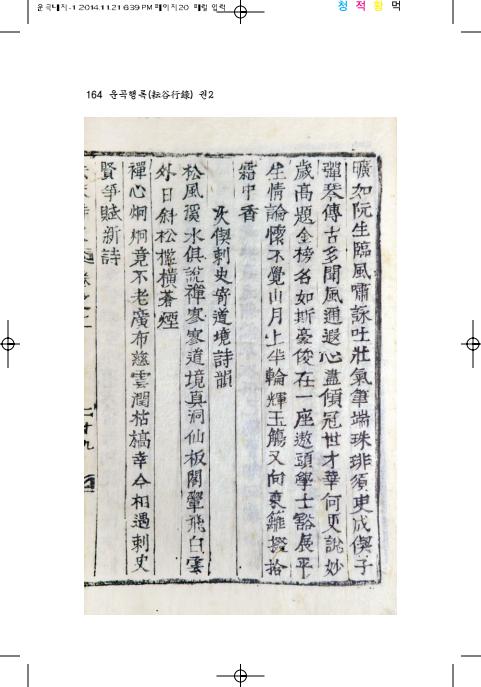 운곡내지-1 2014.11.21 6:39 PM 페이지20 매킬 입력
청 적 황 먹
164 운곡행록(耘谷行錄) 권2
曠如阮生臨風嘯詠吐壯氣筆端珠琲須臾成偰子
彈琴傳古多聞風通遐心盡傾冠世才華何更說妙
歲高題金榜名如斯豪俊在一座遨頭學士豁展平
生情論懷不覺山月上半輪輝玉觴又向東籬撥拾
霜中香
次偰刺史寄道境詩韻
松風溪水俱說禪寒寒道境真洞仙板閣翬飛白雲
外日斜松檻橫蒼煙
禪心炯炯竟不老廣布慈雲潤枯槁幸今相遇刺史
賢爭賦新詩